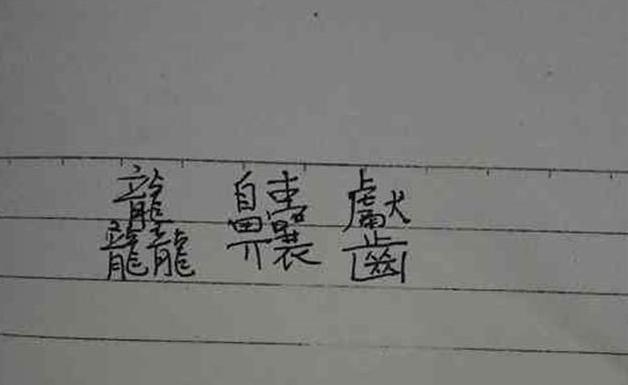 龘 齉 齾